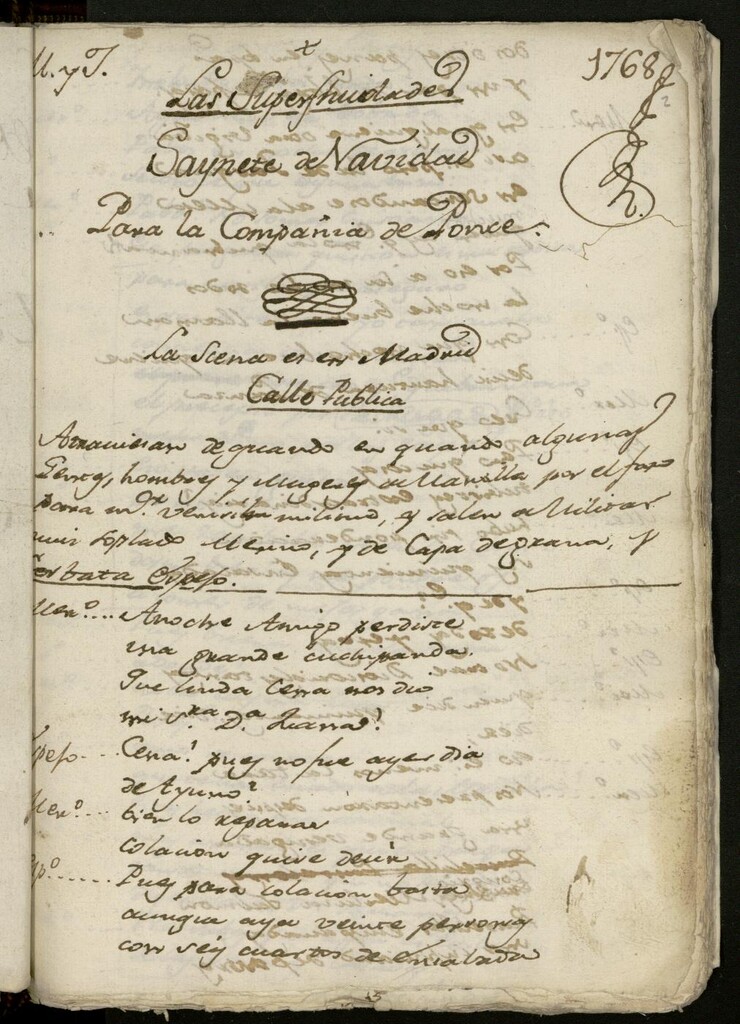 M. y J.
1768
Las Superfluidades
Saynete de Navidad
Para la Compañia de Ponce.
La Scena es en Madrid
Calle Publica
Atraviesan de quando en quando algunas
Gentes, hombres y Mugeres de Mantilla por el foro
para mr. verisimilimo, y salen de Militar
mui soplado Merino, y de Capa de grana, y
Espejo.
Mer.o.... Anoche Amigo perdiste
una grande cuchipanda.
Que linda Cena nos dio
mi S.ra D.a Juana!
Espejo... Cena! pues no fue ayer dia
de Ayuno?
Mer.o... bien lo reparas
colacion quise decir
Esp.o...... Pues para colacion basta
aunque aya veinte personas
con seis cuartos de ensalada